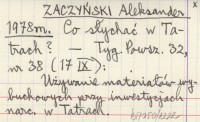 ZACZYŃSKI Aleksander
x
1978m. Co słychać w Ta-
trach? — Tyg. Powsz. 32,
nr 38 (17 IX):
Używanie materiałów wy-
buchowych przy inwestycjach
narc. w Tatrach.